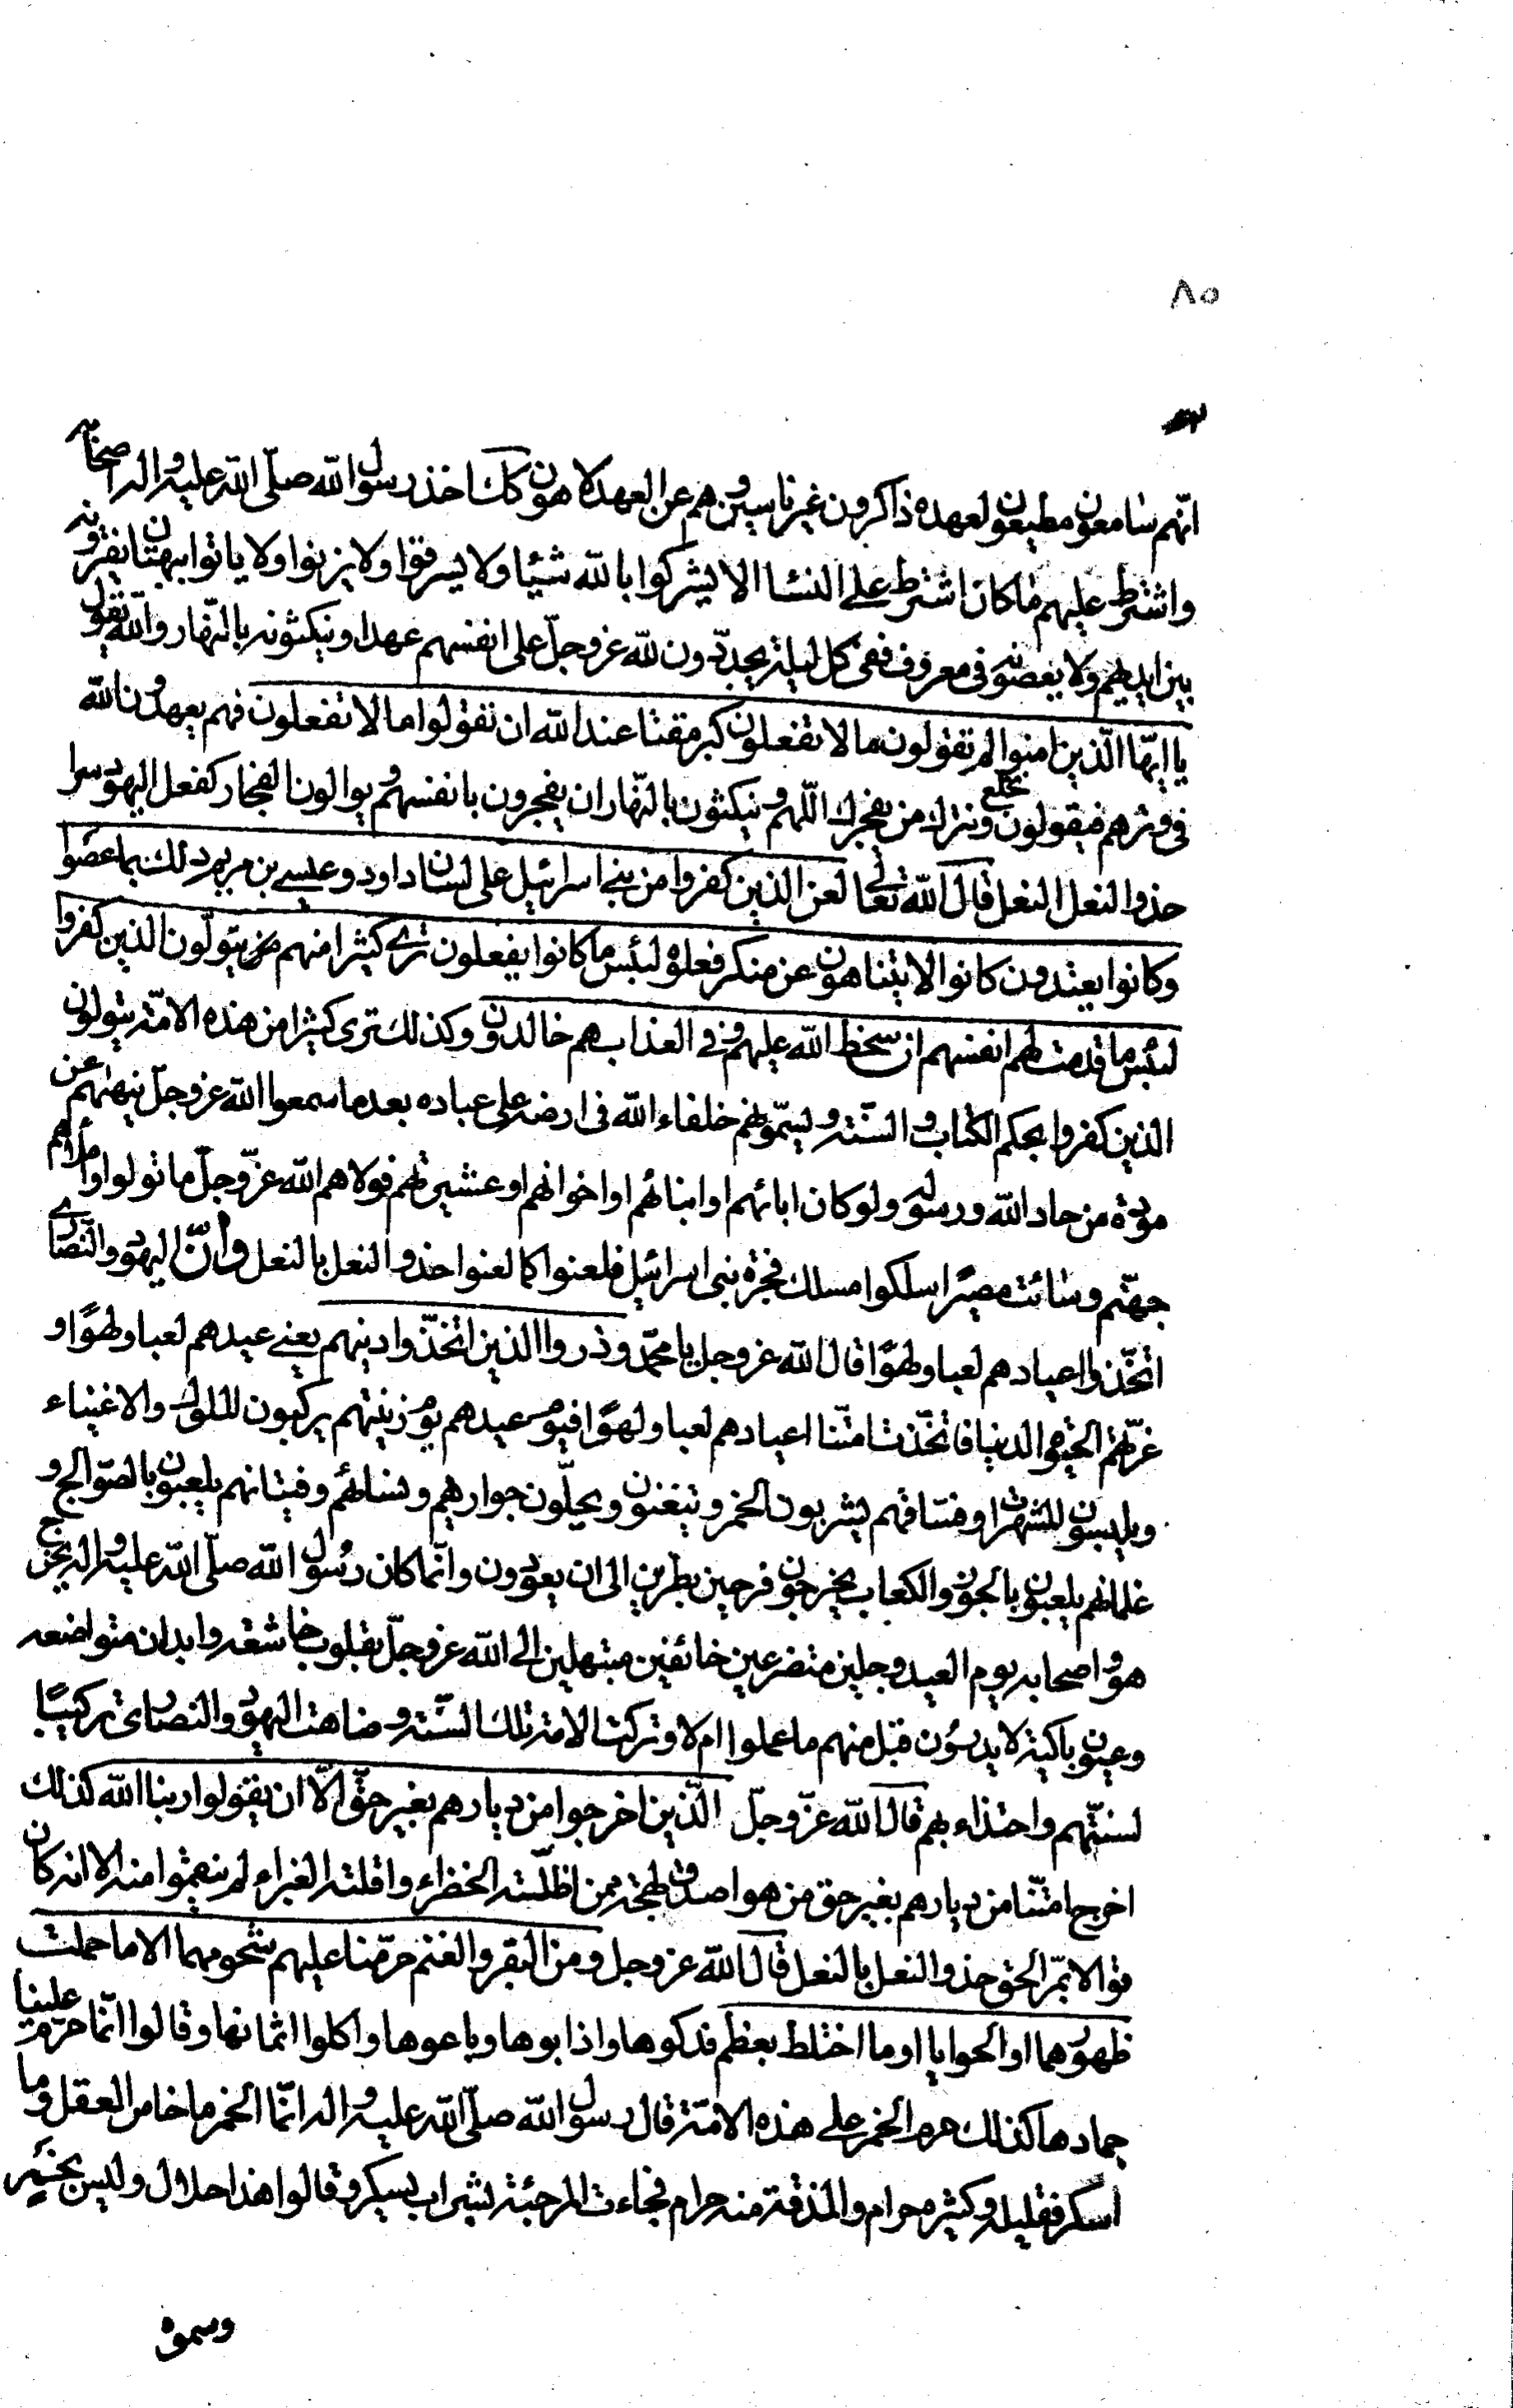 ٨٥
انّهم سامعون مطيعون لعهده ذاكرون غير ناسين وهم عن العهد لاهون كك اخذ رسول الله صلّى الله عليه واله اصحابه
واشترط عليهم ما كان اشترط على النساء الا يشركوا بالله شيئا ولا يسرقوا ولا يزنوا ولا ياتوا ببهتان يفترونه
بين ايديهم ولا يعصونه فى معروف ففى كل ليلة يجدّدون لله عز وجلّ على انفسهم عهدا وينكثونه بالنّهار والله يقول
يا ايّها الّذين امنوا لم تقولون ما لا تفعلون كبر مقتا عند الله ان تقولوا ما لا تفعلون فهم يعهدون الله
فى وترهم فيقولون نخلع ونترك من يفجرك اللّهم وينكثون بالنّهار ان يفجرون بانفسهم ويوالون الفجار كفعل اليهود سرا
حذو النعل النعل قال الله تعالى لعن الذين كفروا من بنى اسرائيل على لسان داود وعيسى بن مريم ذلك بما عصوا
وكانوا يعتدون كانوا لا يتناهون عن منكر فعلوه لبئس ما كانوا يفعلون ترى كثيرا منهم يتولّون الذين كفروا
لبئس ما قدمت لهم انفسهم ان سخط الله عليهم وفى العذاب هم خالدون وكذلك ترى كثيرا من هذه الامّة يتولون
الذين كفروا بحكم الكتاب والسّنّة ويسمّونهم خلفاء الله فى ارضه على عباده بعد ما سمعوا الله عز وجلّ ينهيهم عن
مودة من حاد الله ورسوله ولو كان ابائهم او ابنائهم او اخوانهم او عشيرتهم فولاهم الله عزّ وجلّ ما تولوا
جهنّم وسائت مصيرًا سلكوا مسلك فجرة بنى اسرائيل فلعنوا كما لعنوا حذو النعل بالنعل وانّ اليهود والنّصارى
اتخّذوا اعيادهم لعبا ولهوًا قال الله عز وجل يا محمّد وذروا الذين اتخّذوا دينهم يعنى عيدهم لعبا ولهوًا و
غرّتهم الحيوة الدنيا فاتخّذت امّتنا اعيادهم لعبا ولهوًا فيوم عيدهم يوم زينتهم يركبون الملوك والاغنياء
ويلبسون للشهرة وفساقهم يشربون الخمر ويتغنون ويحلّون جواريهم ونسائهم وفتيانهم يلعبون بالصّوالج و
غلمانهم يلعبون بالجوز والكعاب يخرجون فرحين بطرين الى ان يعودون وانّما كان رسول الله صلّى الله عليه واله يخرج
هو واصحابه يوم العيد وجلين متضرعين خائفين مبتهلين الى الله عز وجلّ بقلوب خاشعه وابدان متواضعه
وعيون باكية لا يدرون قبل منهم ما عملوا ام لا وتركت الامة تلك السّنّة وضاهت اليهود والنصارى
لسنتّهم واحتذاء بهم قال الله عزّ وجلّ الّذين اخرجوا من ديارهم بغير حقّ الّا ان يقولوا ربنا الله كذلك
اخرج امّتنا من ديارهم بغير حق من هو اصدق لهجة ممن اظلّته الخضراء واقلته الغبراء لم ينقموا منه الا انه كان
الحق حذو النعل بالنعل قال الله عز وجل ومن البقر والغنم حرّمنا عليهم شحومهما الا ما حملت
ظهورهما او الحوايا او ما اختلط بعظم واذابوها وباعوها واكلوا اثمانها وقالوا انّما حرّم علينا
جمادها كذلك حرم الخمر على هذه الامّة قال رسول الله صلّى الله عليه واله انّما الخمر ما خامر العقل وما
اسكر فقليله وكثيره حرام والمذقة منه حرام فجاءت المرجئة بشراب يسكر وقالوا هذا حلال وليس بخمر
وسموه